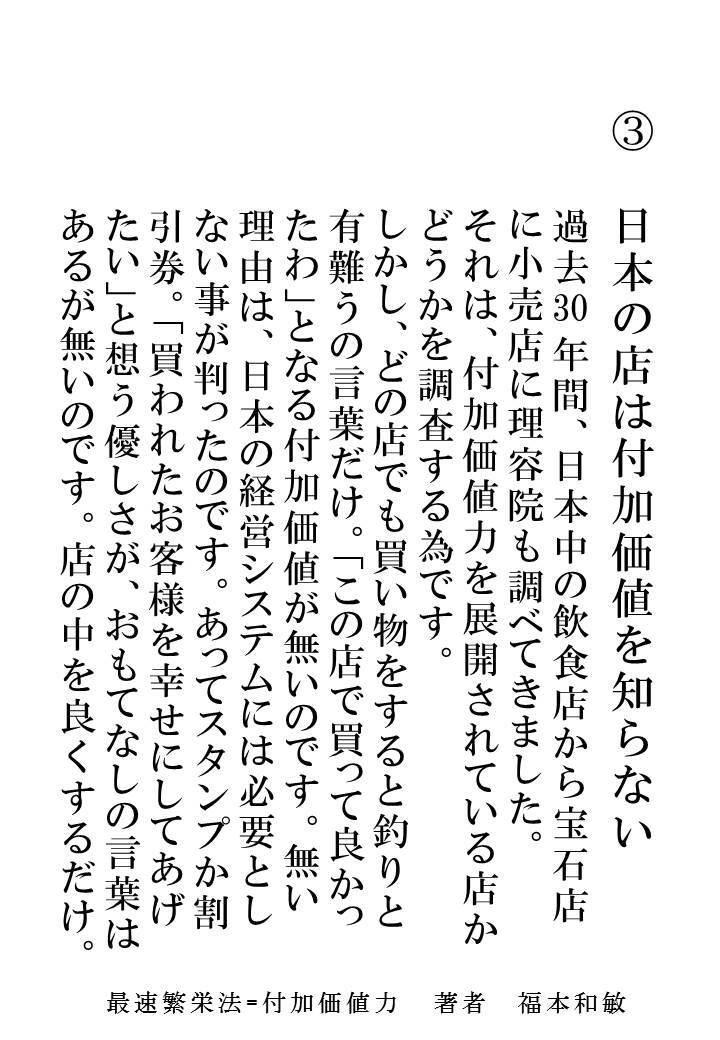 ③　日本の店は付加価値を知らない
過去30年間、日本中の飲食店から宝石店
に小売店に理容院も調べてきました。
それは、付加価値力を展開されている店か
どうかを調査する為です。
しかし、どの店でも買い物をすると釣りと
有難うの言葉だけ。「この店で買って良かっ
たわ」となる付加価値が無いのです。無い
理由は、日本の経営システムには必要とし
ない事が判ったのです。あってスタンプか割
引券。「買われたお客様を幸せにしてあげ
たい」と想う優しさが、おもてなしの言葉は
あるが無いのです。店の中を良くするだけ。
最速繁栄法=付加価値力　著者　福本和敏